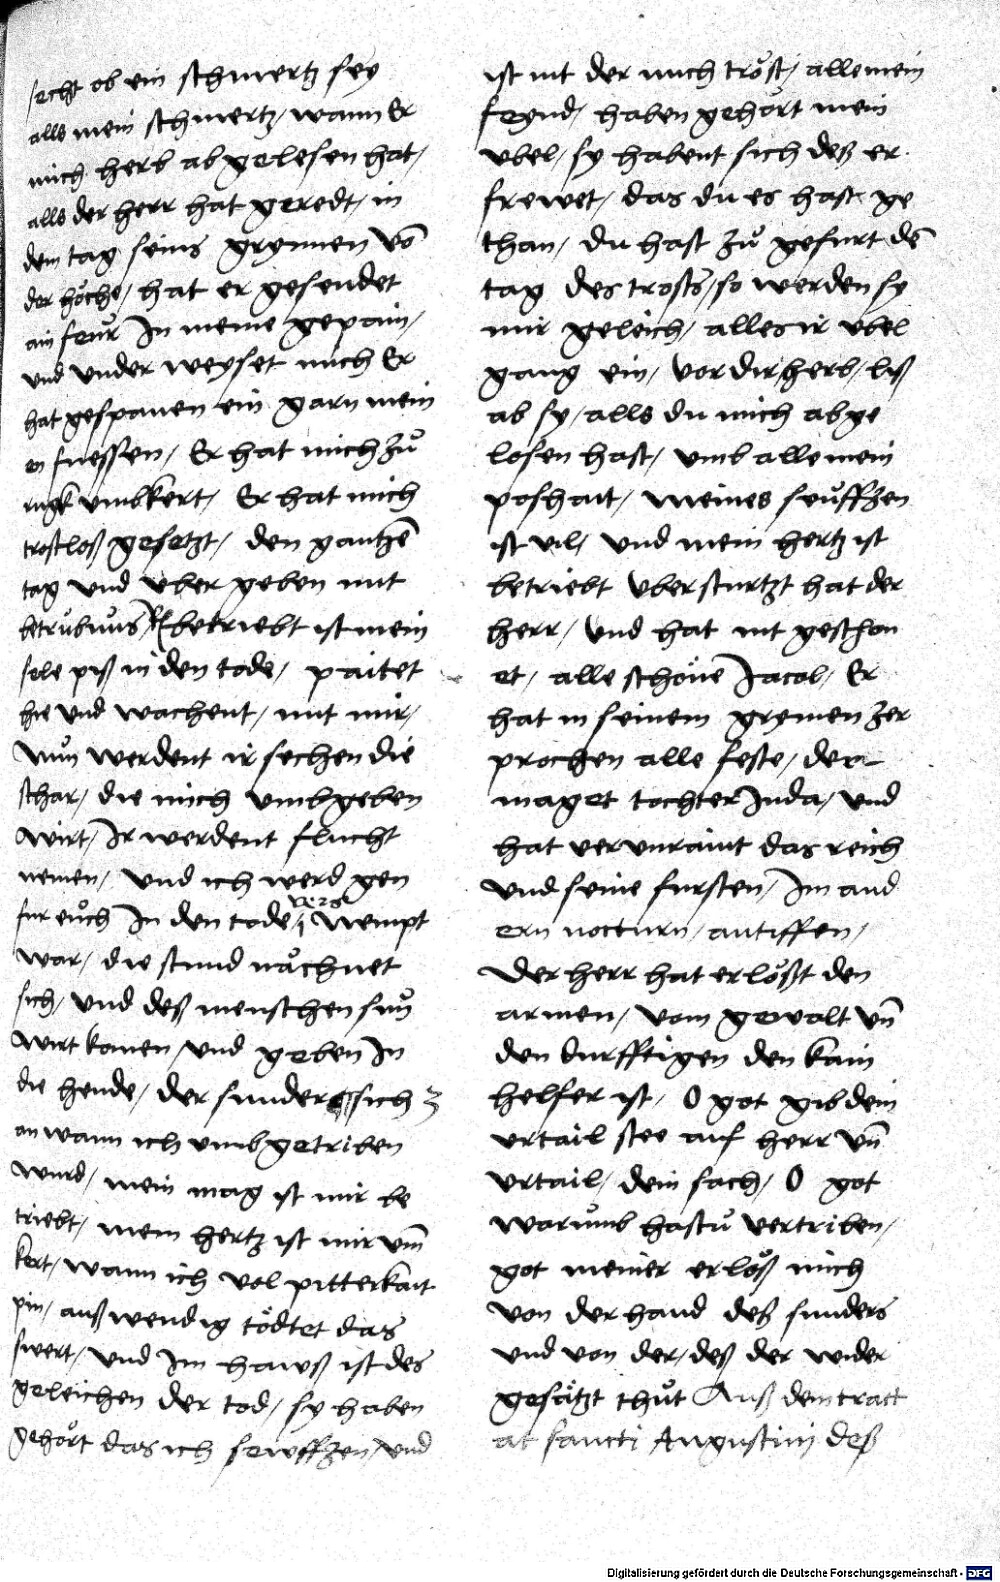 secht ob ein schmertz sey
alls mein schmertz, wann Er
mich herb ab gelesen hat,
alls der herr hat geredt, in
dem tag seins grymmen vō
der höche, hat er gesendet
ain feür In meine gepain,
vnd vnder weyset mich Er
hat gespanen ein garn mein
en fuessen, Er hat mich zů
rugk vmbkert, Er hat mich
trostloß gesetzt, den gantzē
tag vnd vber geben mit
betrübnus betriebt ist mein
sele piß in den tode, paitet
hie vnd wachent, mit mir,
Nun werdent ir sechen die
schar, die mich vmbgeben
wirt, Ir werdent flucht
nemen, vnd ich werd gen
fur eůch In den tode, Nempt
war, die stund nächnet
sich, vnd deß menschen sun
wirt komen, vnd geben In
die hende, der sunder sich
an wann ich vmbgetriben
wurd, mein mag ist mir be
triebt, mein hertz ist mir vm̄
kert, wann ich vol pitterkait
pin, auß wendig tödtet das
swert, vnd Im hawß ist des
geleichen der tod, sy haben
gehört das ich sewffzen, vnd
ist nit der mich tröst, alle mein
feynd, haben gehört mein
vbel, sy habent sich deß er
frewet, das du es hast ge
than, du hast zů gefurt dē
tag des trosts, so werden sy
mir geleich, alles ir vbel
gang ein, vor dir, herb, liß
ab sy, alls du mich abge
losen hast, vmb alle mein
poshait, meines seuffzen
ist vil, vnd mein hertz ist
betriebt vber sturtzt hat der
herr, vnd hat nit geschon
et, alle schöne Jacob, Er
hat in seinem grymen zer
prochen alle feste, der
maget tochter Juda, vnd
hat verunraint das reich
vnd seine fursten, Im and
ern nocturn, antiffen,
Der herr hat erlößt den
armen, vom gewalt vn̄
den durfftigen den kain
helfer ist, O got gib dein
vrtail stee auf herr vn̄
vrtail, dein sach, O got
warumb hastu vertriben,
got meiner erlöß mich
von der hand deß sunders
vnd von der, deß der wider
gesätzt thůt Auß dem tract
at sancti Augustini deß
Digitalisierung gefördert durch die Deutsche Forschungsgemeinschaft - DFG